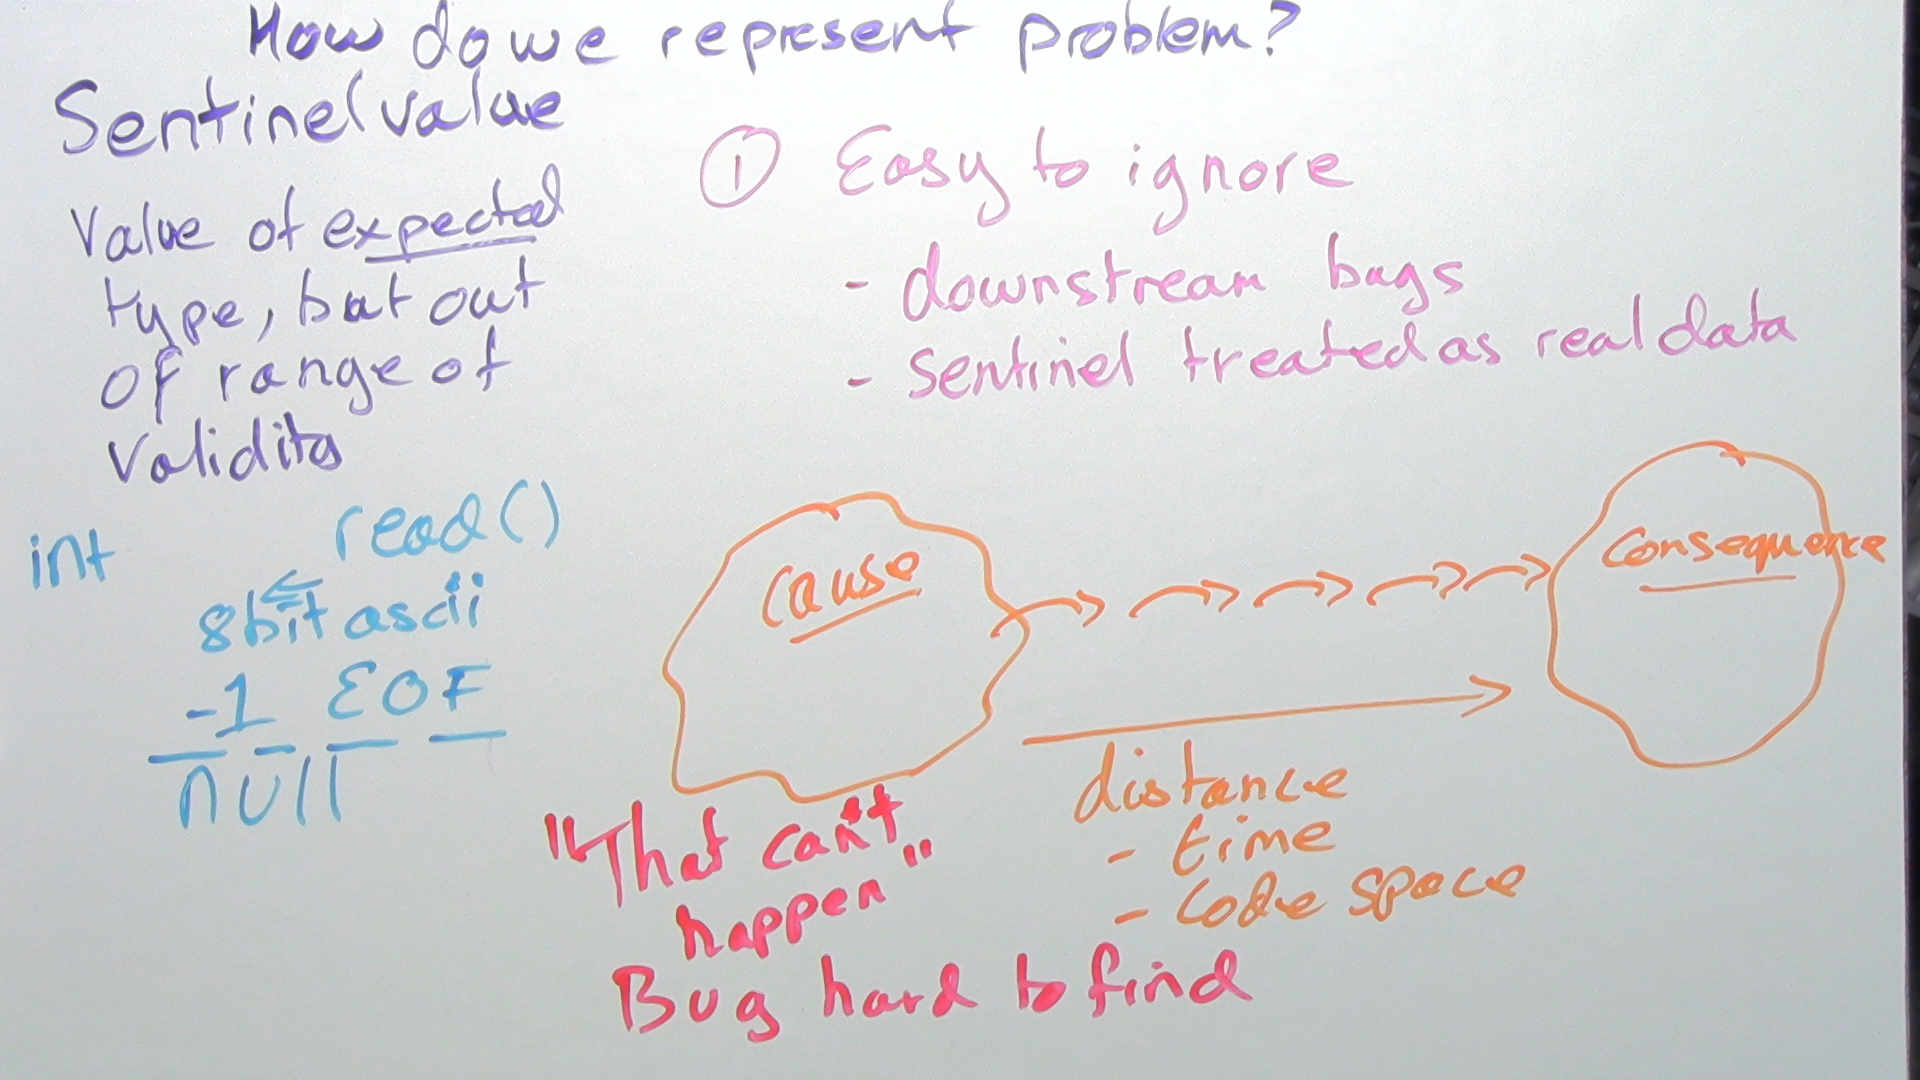 How do we represent problem?
Sentinel value
Value of expected
type, but out
of range of
validity
int read()
8bit ascii
-1 EOF
null
① Easy to ignore
- downstream bugs
- sentinel treated as real data
cause
consequence
distance
- time
- code space
"That can't
happen"
Bug hard to find